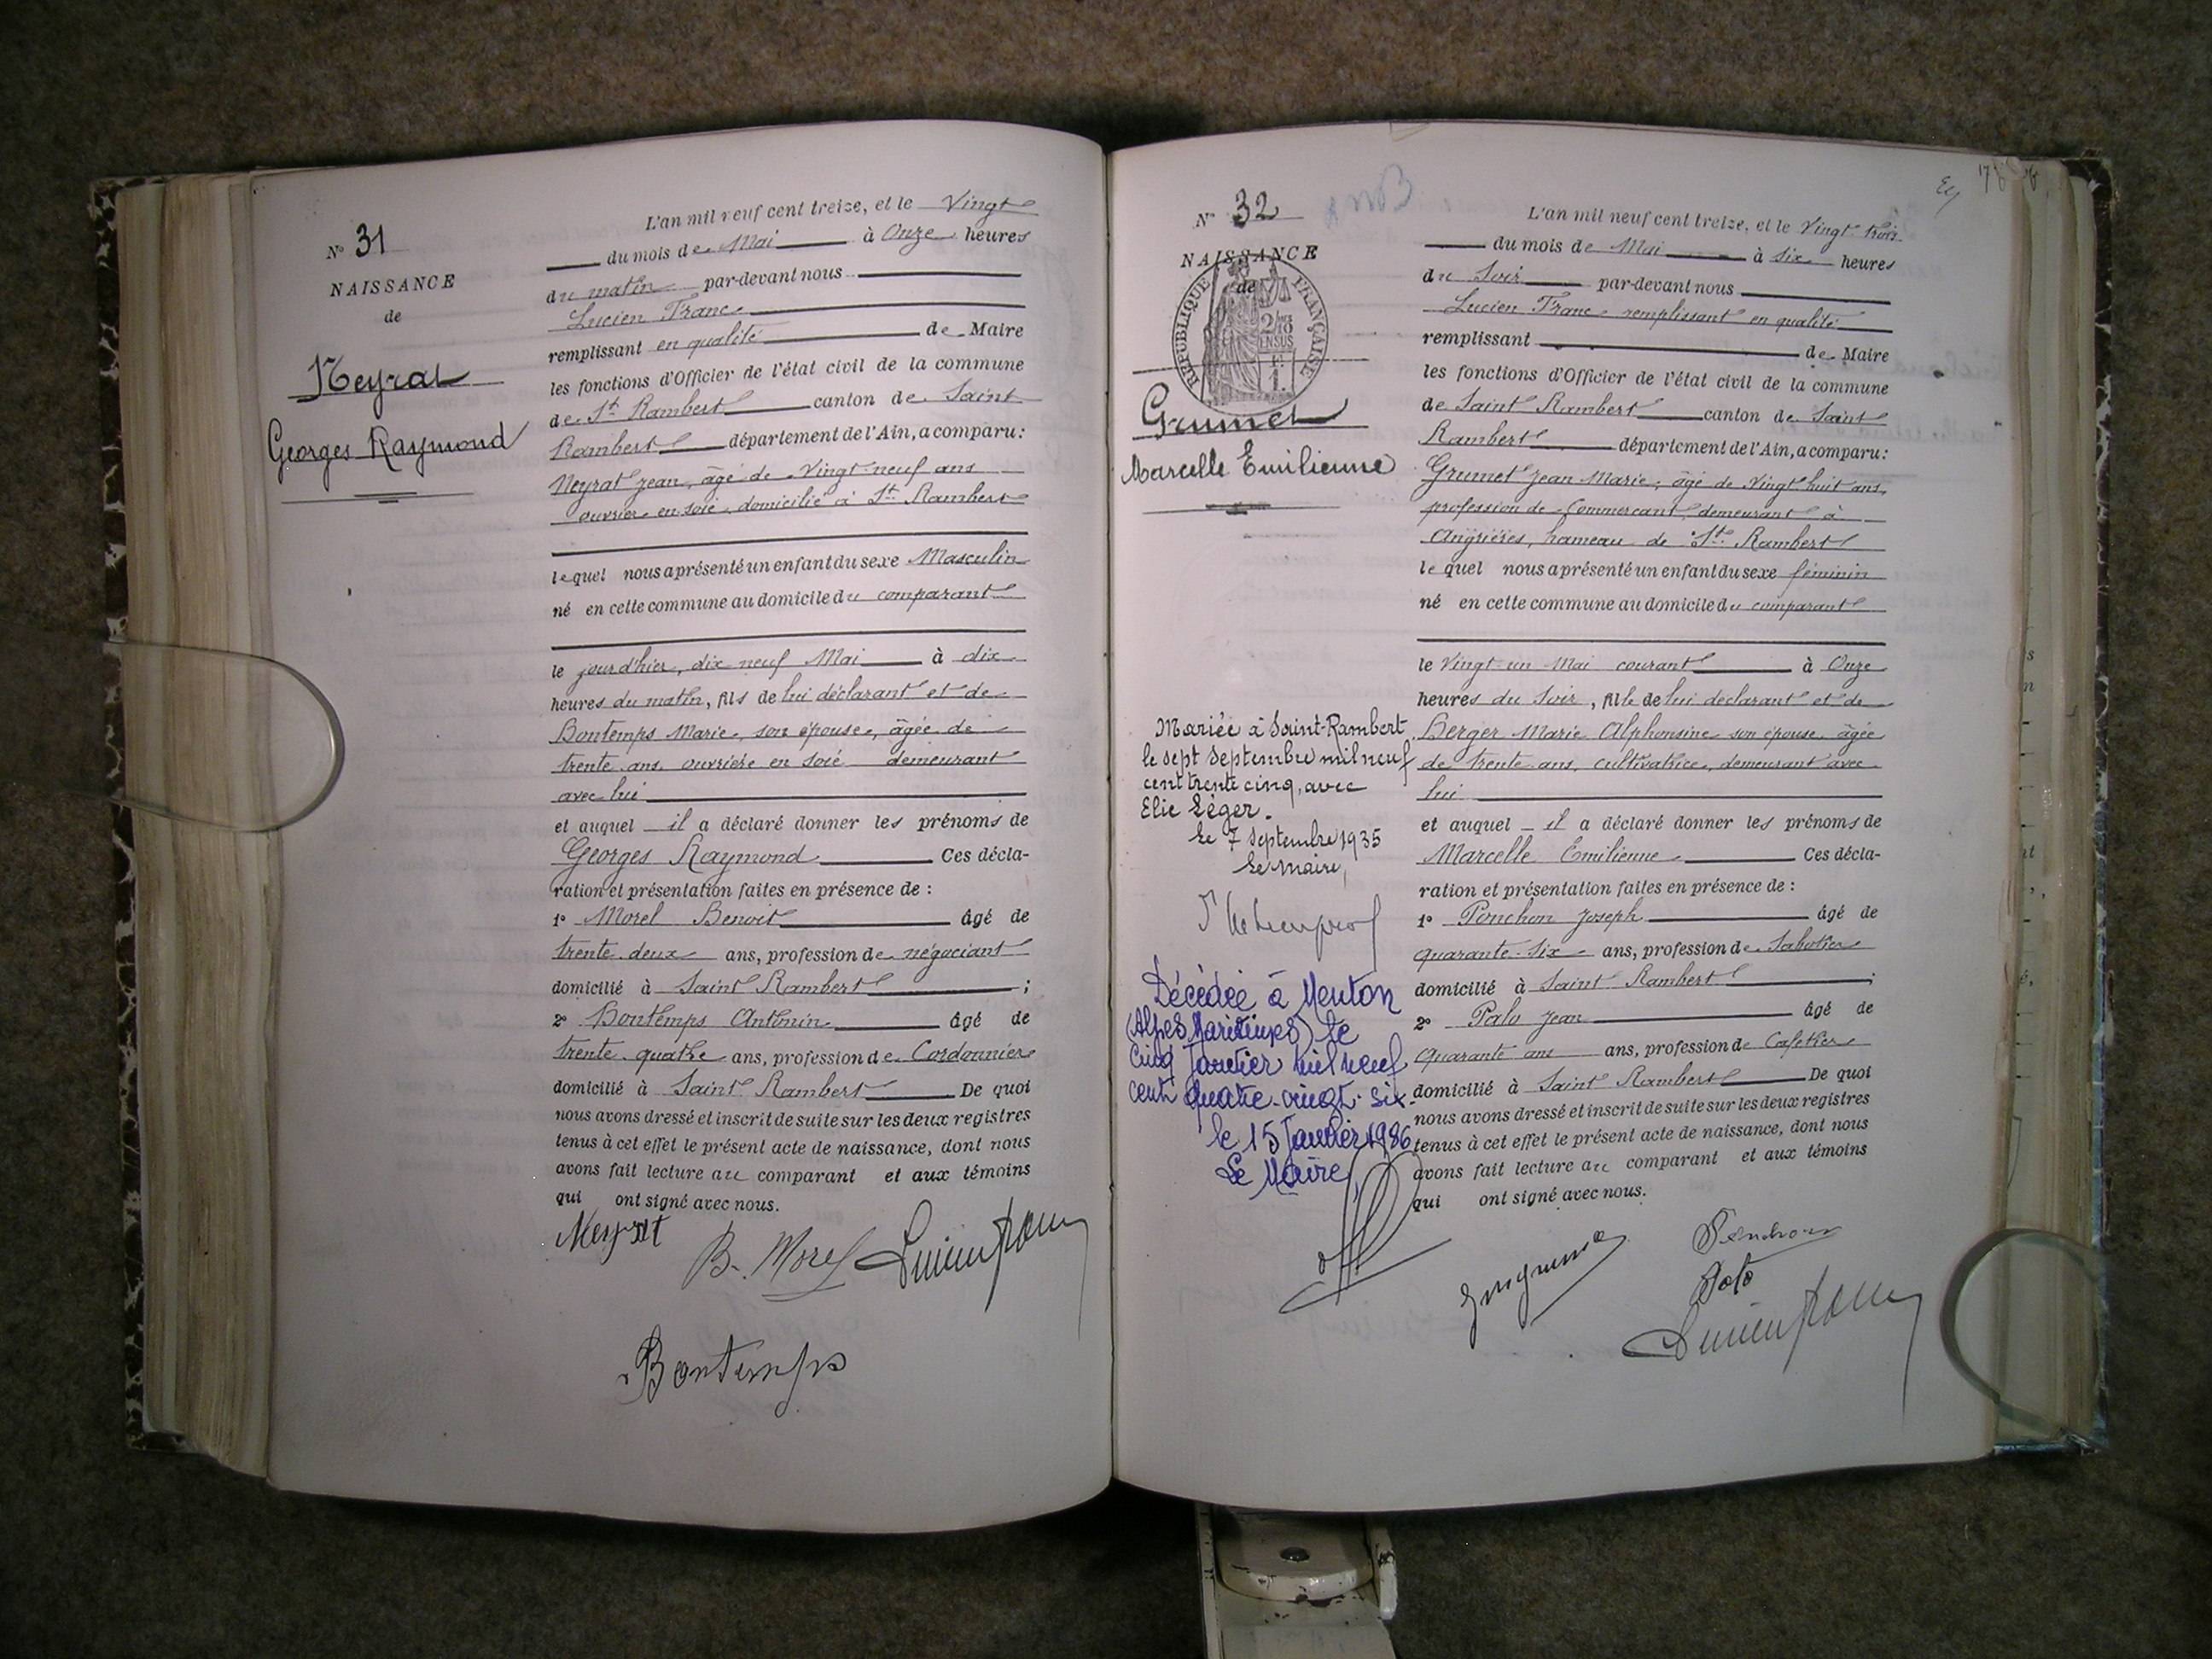 N° 31
NAISSANCE
de
Neyrat
Georges Raymond
L'an mil neuf cent treize, et le Vingt
du mois de Mai à Onze heures
du matin par-devant nous
Lucien Franc
remplissant en qualité de Maire
les fonctions d'Officier de l'état civil de la commune
de St Rambert canton de Saint
Rambert département de l'Ain, a comparu:
Neyrat Jean, âgé de Vingt neuf ans
ouvrier en soie, domicilié à St Rambert
lequel nous a présenté un enfant du sexe Masculin
né en cette commune au domicile du comparant
le jour d'hier, dix neuf Mai à dix
heures du matin, fils de lui déclarant et de
Bontemps Marie, son épouse, âgée de
trente ans ouvrière en soie demeurant
avec lui
et auquel il a déclaré donner les prénoms de
Georges Raymond Ces décla-
ration et présentation faites en présence de :
1° Morel Benoit âgé de
trente deux ans, profession de négociant
domicilié à Saint Rambert ;
2° Bontemps Antonin âgé de
trente quatre ans, profession de Cordonnier
domicilié à Saint Rambert De quoi
nous avons dressé et inscrit de suite sur les deux registres
tenus à cet effet le présent acte de naissance, dont nous
avons fait lecture au comparant et aux témoins
qui ont signé avec nous.
Neyrat
B. Morel Lucien Franc
Bontemps
N° 32
NAISSANCE
de
REPUBLIQUE FRANÇAISE
Grumet
Marcelle Emilienne
Mariée à Saint-Rambert
le sept Septembre mil neuf
cent trente cinq, avec
Elie Léger.
Le 7 Septembre 1935
Le Maire,
Décédée à Menton
(Alpes Maritimes) le
cinq Janvier mil neuf
cent quatre-vingt-six
le 15 Janvier 1986
Le Maire,
L'an mil neuf cent treize, et le Vingt trois
du mois de Mai à Six heures
du Soir par-devant nous
Lucien Franc remplissant en qualité
remplissant de Maire
les fonctions d'Officier de l'état civil de la commune
de Saint Rambert canton de Saint
Rambert département de l'Ain, a comparu:
Grumet Jean Marie, âgé de Vingt huit ans,
profession de Commercant demeurant à
Angrières, hameau de St Rambert
lequel nous a présenté un enfant du sexe féminin
né en cette commune au domicile du comparant
le Vingt un Mai courant à Onze
heures du Soir, fille de lui déclarant et de
Berger Marie Alphonsine son épouse âgée
de trente ans, cultivatrice, demeurant avec
lui
et auquel il a déclaré donner les prénoms de
Marcelle Emilienne Ces décla-
ration et présentation faites en présence de :
1° Ponchon Joseph âgé de
quarante-six ans, profession de Sabotier
domicilié à Saint Rambert ;
2° Palo Jean âgé de
Quarante ans ans, profession de Cafetier
domicilié à Saint Rambert De quoi
nous avons dressé et inscrit de suite sur les deux registres
tenus à cet effet le présent acte de naissance, dont nous
avons fait lecture au comparant et aux témoins
qui ont signé avec nous.
Lucien Franc